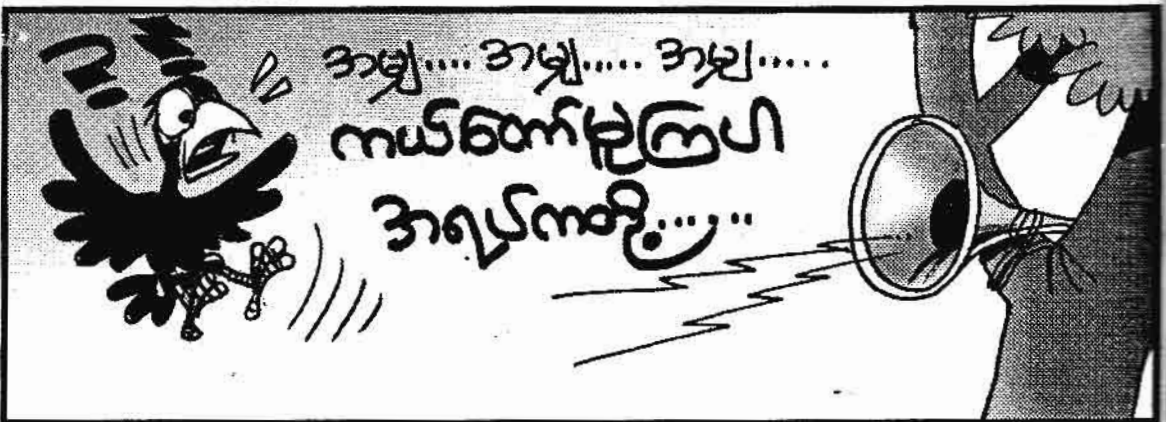 အမျှ.... အမျှ..... အမျှ.....
ကယ်တော်မူကြပါ
အရပ်ကတို့......